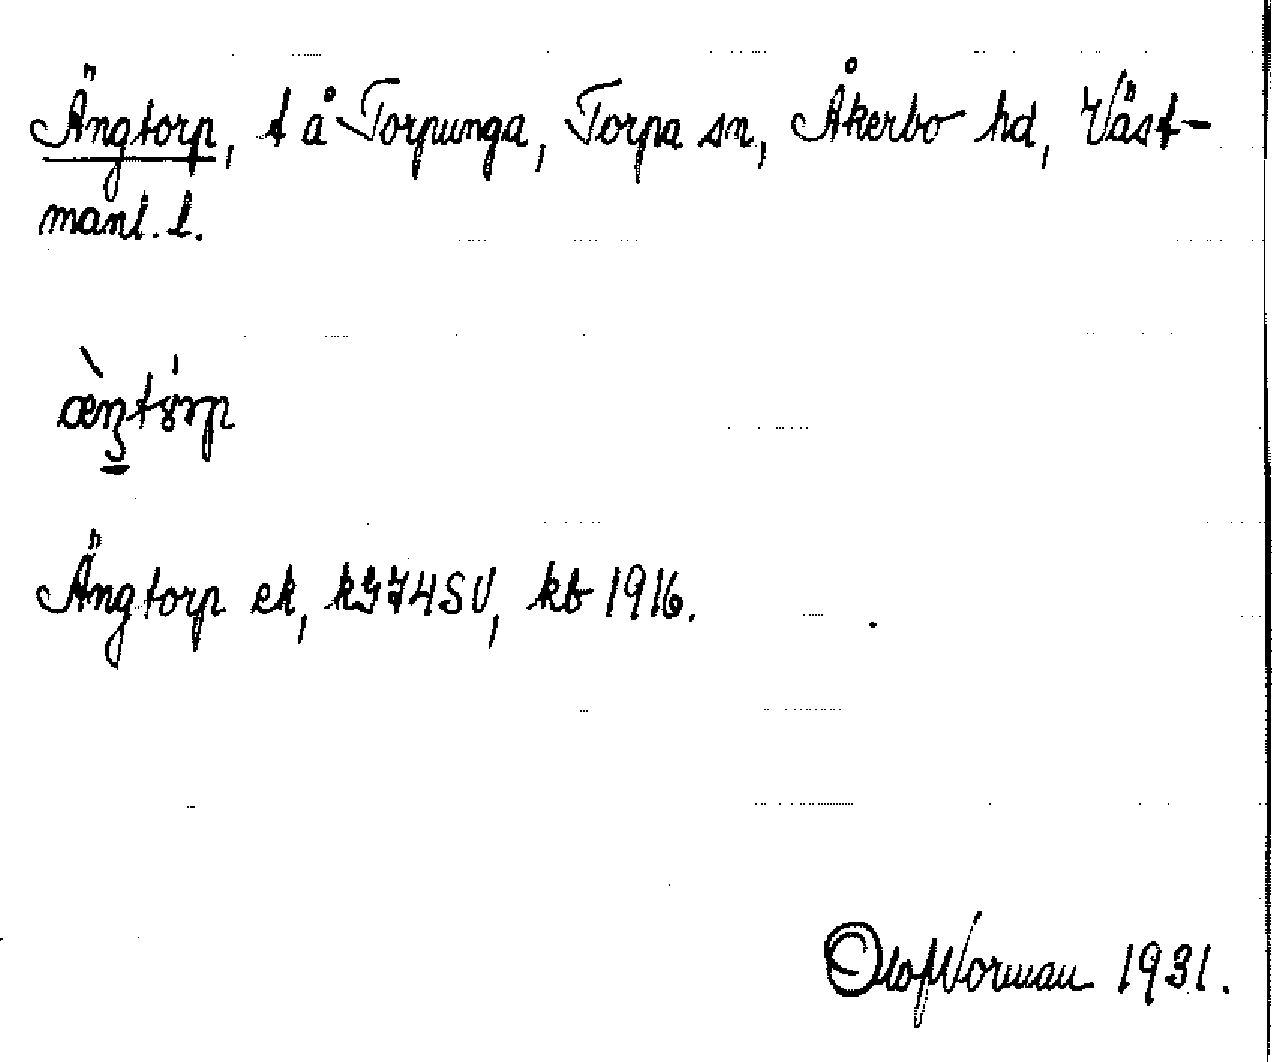 Ängtorp, t å Torpunga, Torpa sn, Åkerbo hd, Väst-
manl. l.
Ängtorp ek, kG74SV, kb 1916.
Olof Norman 1931.